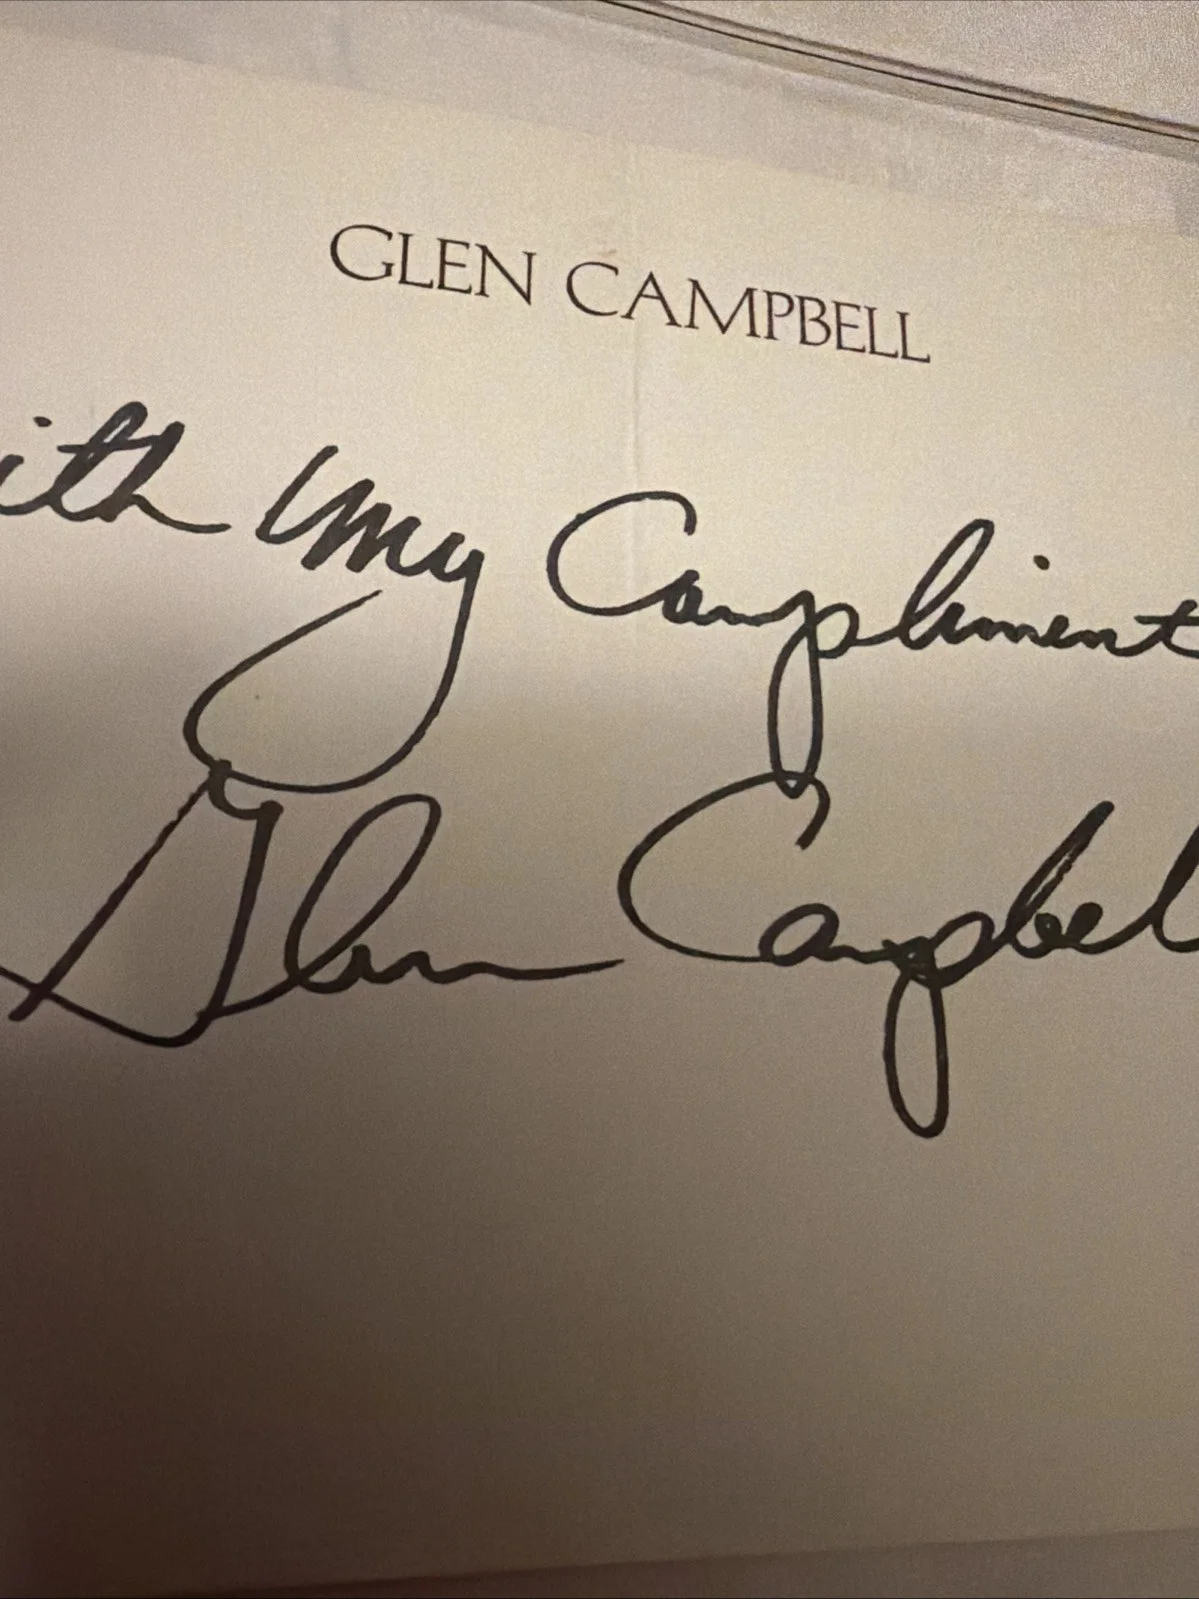 GLEN CAMPBELL
ith my Compliment
Glen Campbel